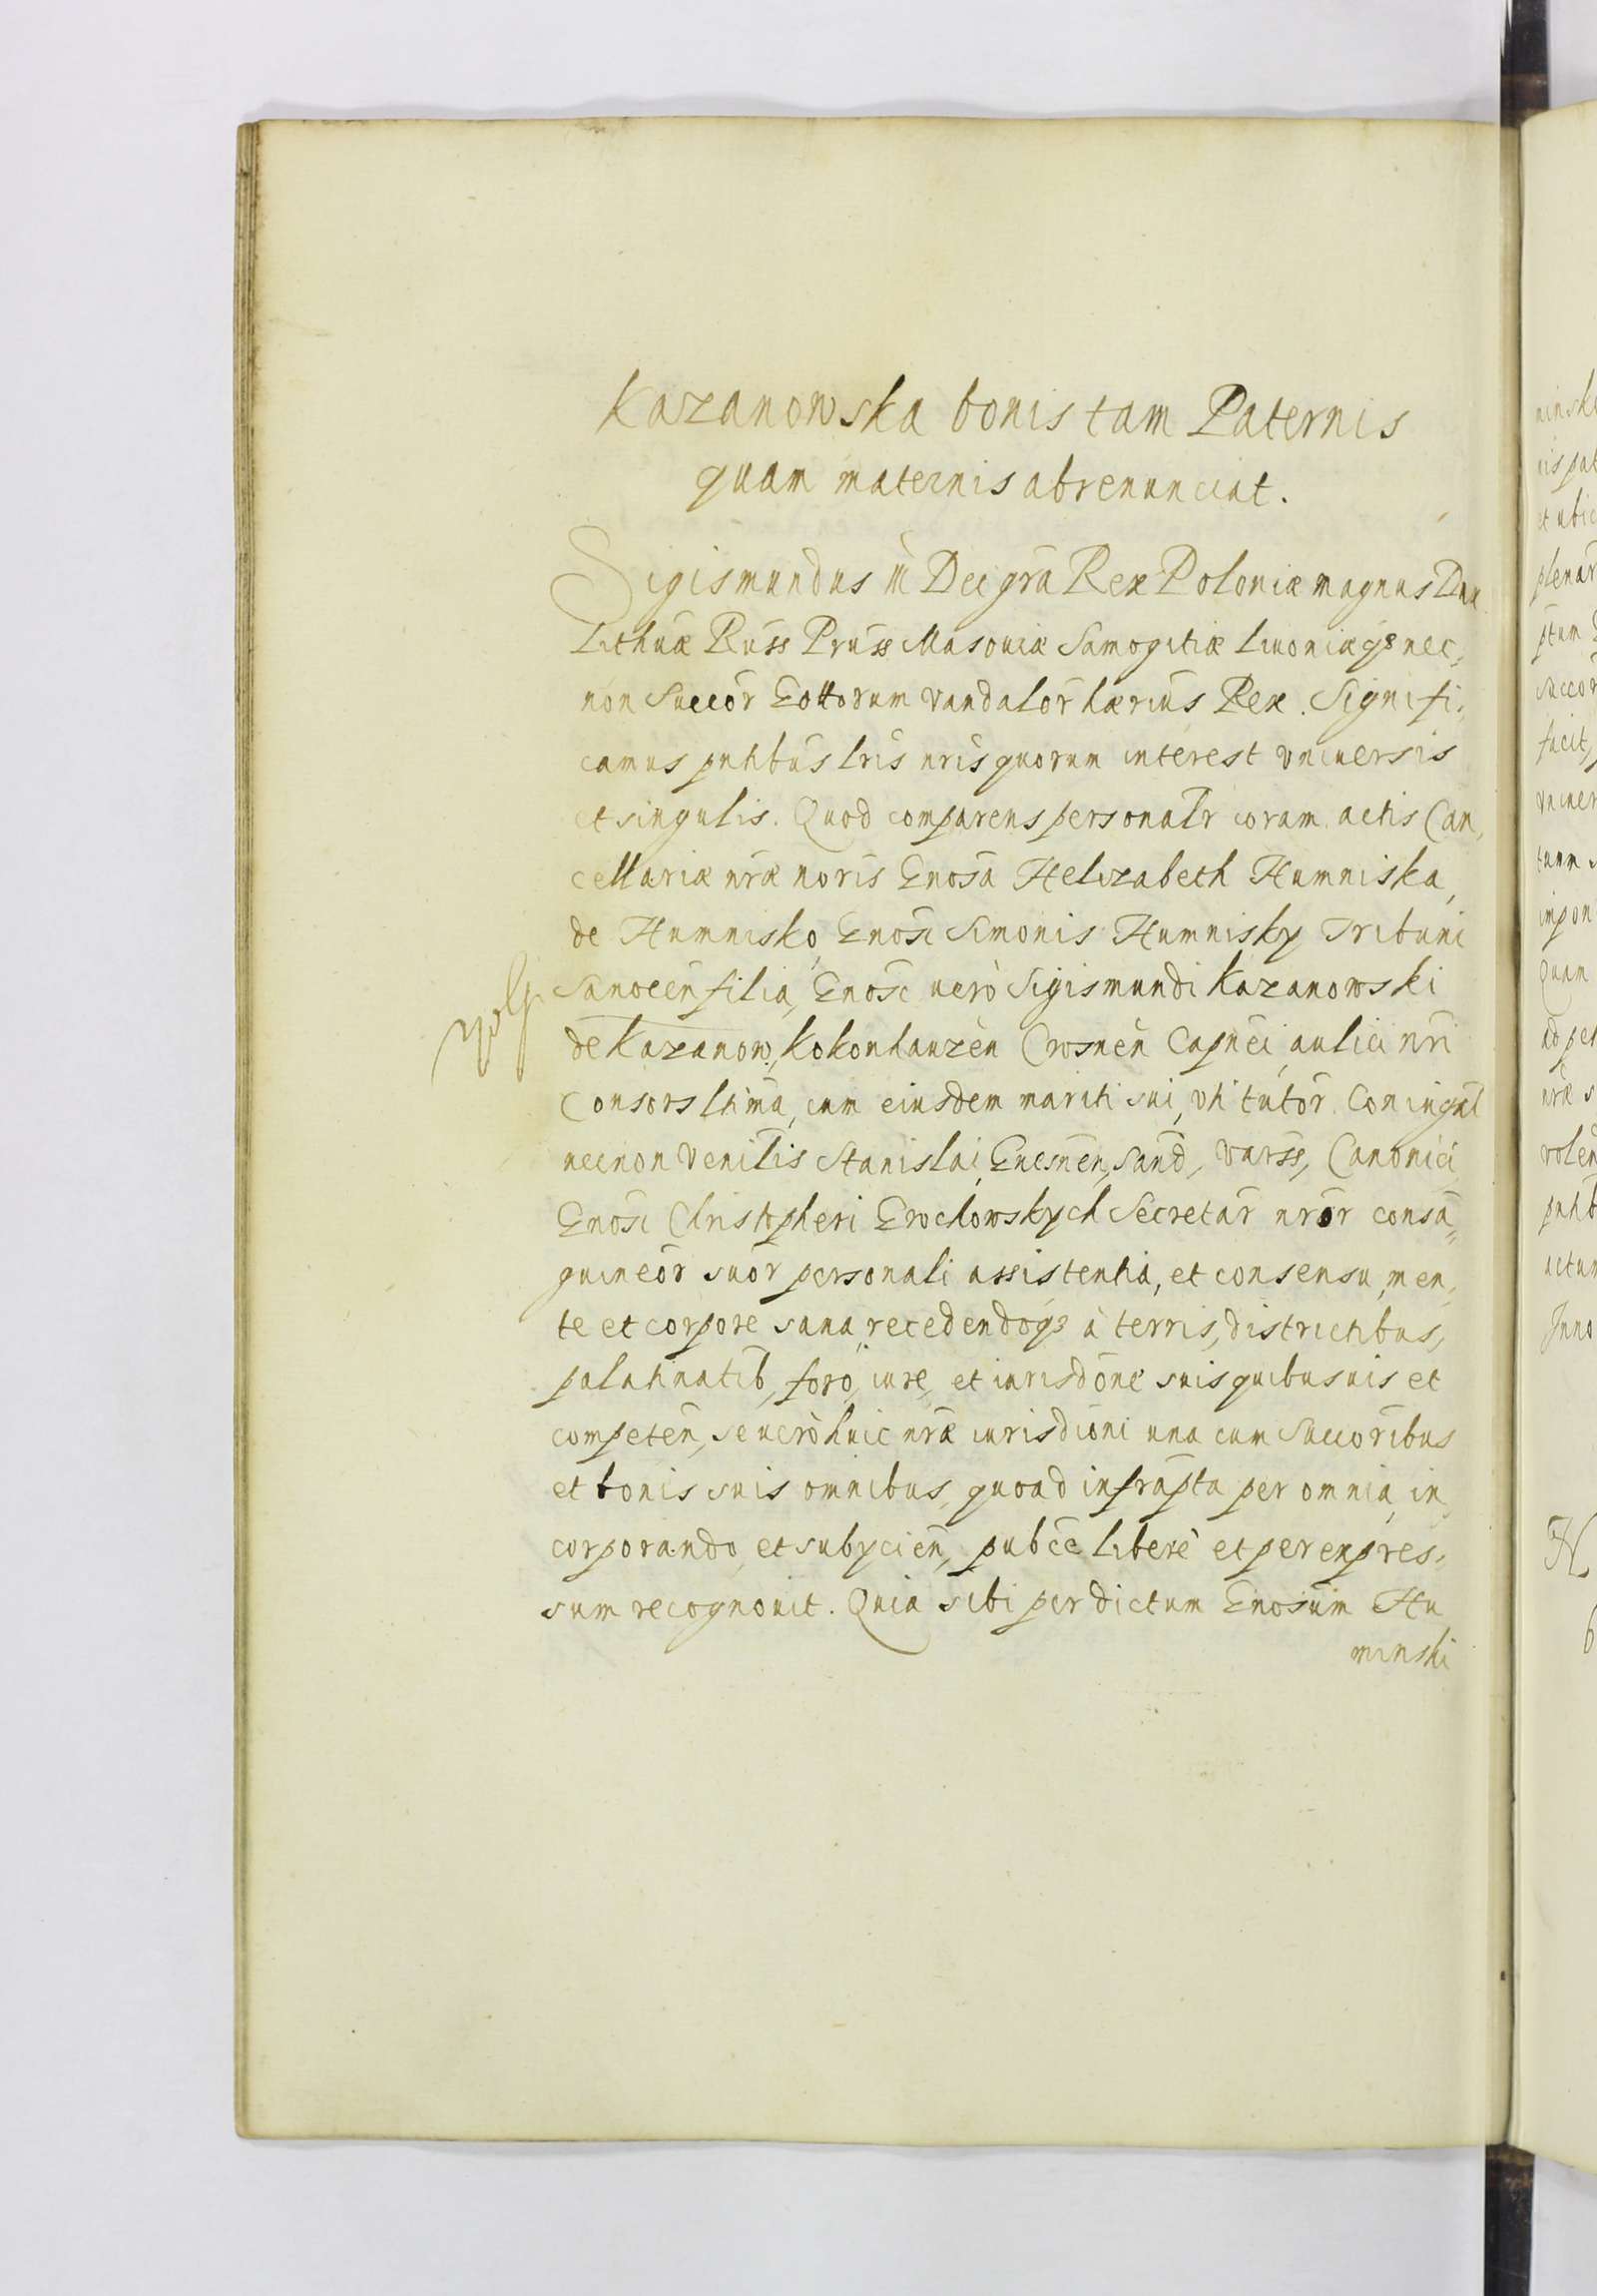 Kazanowska bonis tam Paternis
quam maternis abrenunciat.
Sigismundus III Dei grã Rex Poloniæ magnus Dux
Lithuæ Russ Pruss Masouiæ Samogitiæ Liuoniæq3 nec,
non Suecor̃ Gottorum Vandalor̃ hæriũs Rex. Signifi,
camus pñtibus lris nris quorum interest vniuersis
et singulis. Quod comparens personalr coram actis Can,
cellariæ nræ noris Gnosa Helizabeth Humniska,
de Humnisko, Gnosi Simonis Humnisky Tribuni
Sanocen filia, Gnosi uero Sigismundi Kazanowski
de Kazanow, Kokonhauzen Crosnen Capnei, aulici nri
Consors ltima, cum eiusdem mariti sui, vti tutor Coniugal
necnon Venilis Stanislai, Gnesnen, Sand, Varss, Canonici
Gnosi Christopheri Grochowskych Secretar nror consã,
guineor suor personali assistentia, et consensu, men,
te et corpore sana, recedendoq3 à terris, districtibus,
palatinatib, foro, iure, et iurisdone suis quibusuis et
competen, se uerò huic nræ iurisdioni una cum Succoribus
et bonis suis omnibus, quoad infrapta per omnia, in
corporando, et subycien, pubce liberè et per expres,
sum recognouit. Quia sibi per dictum Gnosum Hu
minski
ninski
et ubic
plenar
ptum
Succor
facit,
vniuer
tuum
impon
Quam
ad per
nræ s
volen
pntib
actum
Inno
H